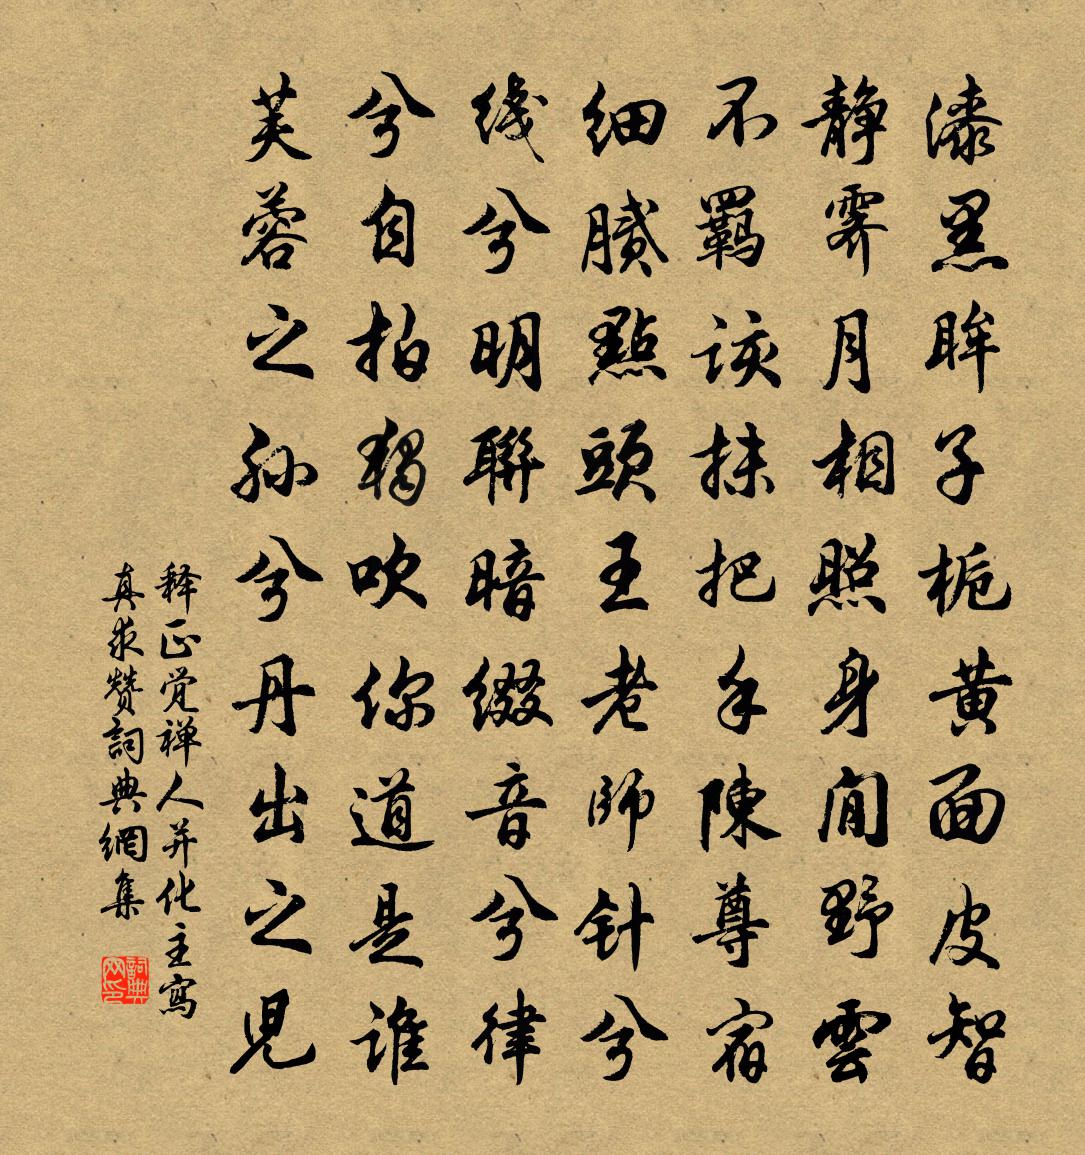 漆黑眸子栀黄面皮智
静霁月相照身闲野雲
不羁诙抹把手陳尊宿
细腻點頭王老師针兮
线兮明聯暗缀音兮律
兮自拍獨吹你道是谁
芙蓉之孙兮丹出之児
释正觉禅人并化主寫
真求赞詞典網集
詞典网印